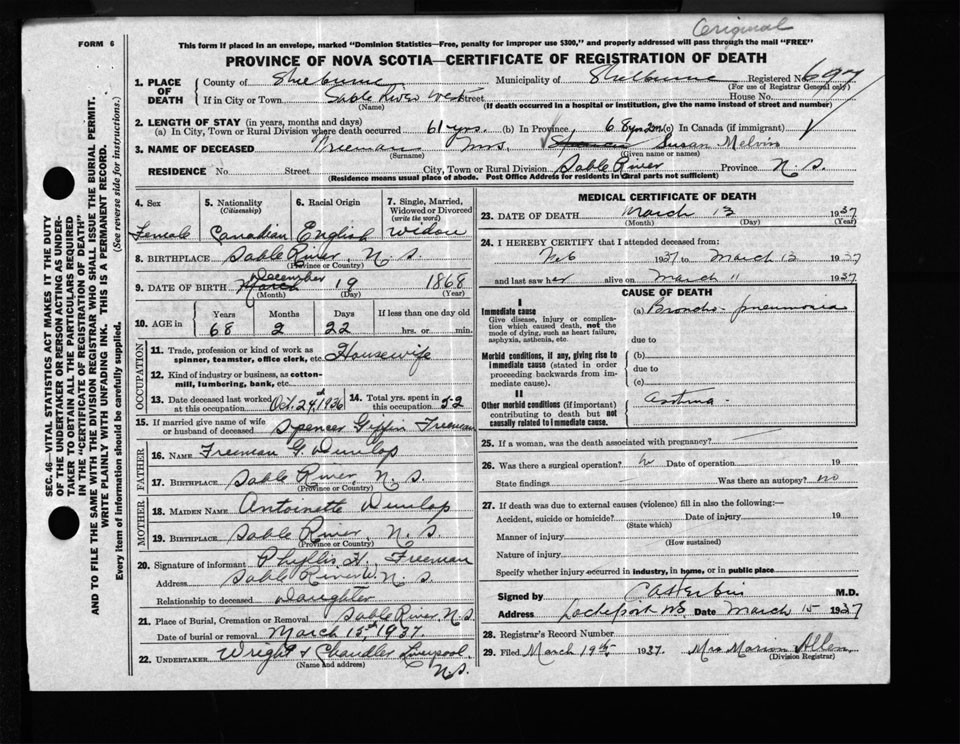 Original
FORM 6
This form if placed in an envelope, marked "Dominion Statistics—Free, penalty for improper use $300," and properly addressed will pass through the mail "FREE"
PROVINCE OF NOVA SCOTIA—CERTIFICATE OF REGISTRATION OF DEATH
1. PLACE OF DEATH County of Shelburne Municipality of Shelburne Registered No. 697
(For use of Registrar General only)
If in City or Town Sable River West Street House No.
(Name) (If death occurred in a hospital or institution, give the name instead of street and number)
2. LENGTH OF STAY (in years, months and days)
(a) In City, Town or Rural Division where death occurred 61 yrs. (b) In Province 68 yrs 2m (c) In Canada (if immigrant) √
3. NAME OF DECEASED Freeman Mrs. Susan Melvin
(Surname) (Given name or names)
RESIDENCE No. Street City, Town or Rural Division Sable River Province N.S.
(Residence means usual place of abode. Post Office Address for residents in rural parts not sufficient)
4. Sex 5. Nationality (Citizenship) 6. Racial Origin 7. Single, Married, Widowed or Divorced (write the word)
Female Canadian English Widow
8. BIRTHPLACE Sable River, N.S.
(Province or Country)
9. DATE OF BIRTH March December 19 1868
(Month) (Day) (Year)
10. AGE in Years Months Days If less than one day old
68 2 22 hrs. or min.
OCCUPATION
11. Trade, profession or kind of work as spinner, teamster, office clerk, etc. Housewife
12. Kind of industry or business, as cotton-mill, lumbering, bank, etc.
13. Date deceased last worked at this occupation Oct. 24, 1936 14. Total yrs. spent in this occupation 52
15. If married give name of wife or husband of deceased Spencer Giffin Freeman
FATHER
16. Name Freeman G. Dunlop
17. Birthplace Sable River, N.S.
(Province or Country)
MOTHER
18. Maiden Name Antoinette Dunlop
19. Birthplace Sable River N.S.
(Province or Country)
20. Signature of informant Phyllis H. Freeman
Address Sable River W. N.S.
Relationship to deceased Daughter
21. Place of Burial, Cremation or Removal Sable River, N.S.
Date of burial or removal March 15th 1937.
22. UNDERTAKER Wright & Chandler Liverpool N.S.
(Name and address)
MEDICAL CERTIFICATE OF DEATH
23. DATE OF DEATH March 13 1937
(Month) (Day) (Year)
24. I HEREBY CERTIFY that I attended deceased from:
Feb 1937 to March 13 1937
and last saw her alive on March 11 1937
CAUSE OF DEATH
I
Immediate cause
Give disease, injury or complication which caused death, not the mode of dying, such as heart failure, asphyxia, asthenia, etc.
(a) Broncho-pneumonia
due to
Morbid conditions, if any, giving rise to immediate cause (stated in order proceeding backwards from immediate cause).
(b)
due to
(c)
II
Other morbid conditions (if important) contributing to death but not causally related to immediate cause.
Asthma -
25. If a woman, was the death associated with pregnancy?
26. Was there a surgical operation? Date of operation 19
State findings Was there an autopsy? no
27. If death was due to external causes (violence) fill in also the following:—
Accident, suicide or homicide? Date of injury 19
(State which)
Manner of injury
(How sustained)
Nature of injury
Specify whether injury occurred in industry, in home, or in public place
Signed by M.D.
Address Lockeport N.S. Date March 15 1937
28. Registrar's Record Number
29. Filed March 19th 1937. Mrs Marion Allen
(Division Registrar)
SEC. 46—VITAL STATISTICS ACT MAKES IT THE DUTY
OF THE UNDERTAKER OR PERSON ACTING AS UNDER-
TAKER TO OBTAIN ALL THE PARTICULARS REQUIRED
IN THE "CERTIFICATE OF REGISTRATION OF DEATH"
AND TO FILE THE SAME WITH THE DIVISION REGISTRAR WHO SHALL ISSUE THE BURIAL PERMIT.
WRITE PLAINLY WITH UNFADING INK. THIS IS A PERMANENT RECORD.
Every item of information should be carefully supplied. (See reverse side for instructions.)